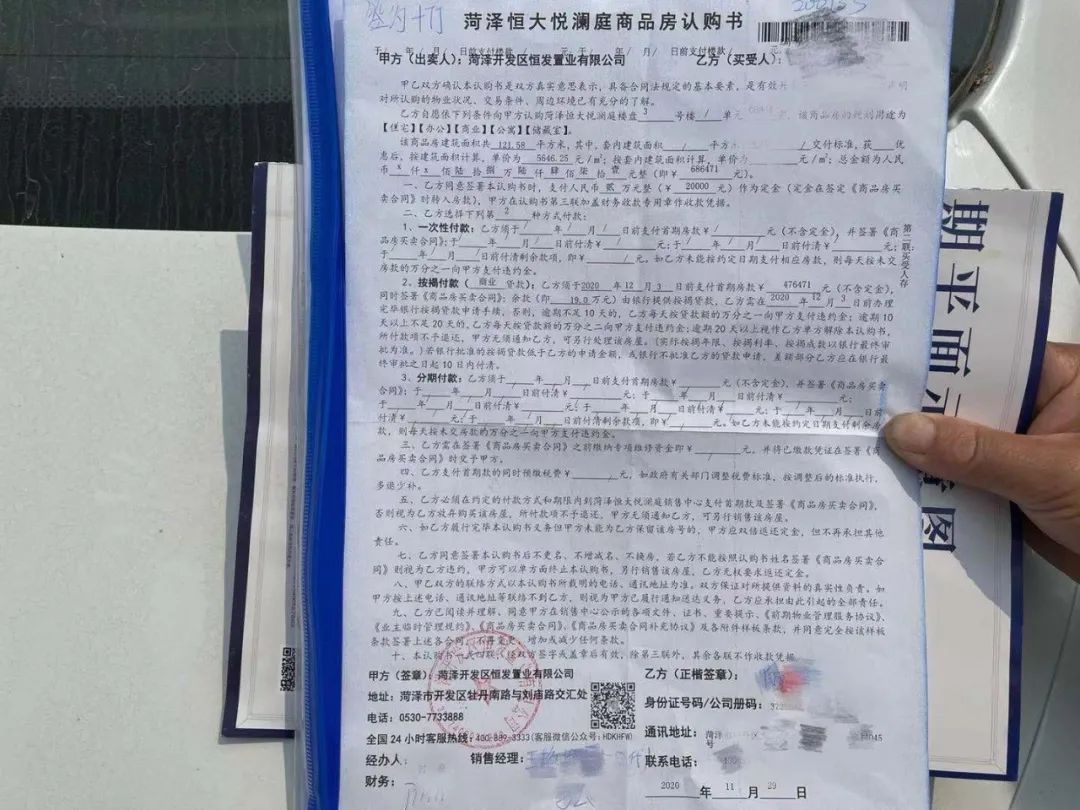 菏泽恒大悦澜庭商品房认购书
于 / 年 / 月 / 日前支付楼款 / 元；于 / 年 / 月 / 日前支付楼款
甲方（出卖人）：菏泽开发区恒发置业有限公司 乙方（买受人）：
甲乙双方确认本认购书是双方真实意思表示，具备合同法规定的基本要素，是有效
对所认购的物业状况、交易条件、周边环境已有充分的了解。
乙方自愿依下列条件向甲方认购菏泽恒大悦澜庭楼盘 3 号楼 / 单元 该商品房的规划用途为
【住宅】【办公】【商业】【公寓】【储藏室】。
该商品房建筑面积共 121.58 平方米，其中，套内建筑面积 / 平方米 / 交付标准，获 优
惠后，按建筑面积计算，单价为 5646.25 元/㎡；按套内建筑面积计算，单价为 / 元/㎡；总金额为人民
币 x 仟 x 佰 陆 拾 捌 万 陆 仟 肆 佰 柒 拾 壹 元整（即￥ 686471 元）。
一、乙方同意签署本认购书时，支付人民币 贰 万元整（￥ 20000 元）作为定金（定金在签定《商品房买
卖合同》时转入房款），甲方在认购书第三联加盖财务收款专用章作收款凭据。
二、乙方选择下列第 2 种方式付款：
1、一次性付款：乙方须于 / 年 / 月 / 日前支付首期房款￥ / 元（不含定金），并签署《商
品房买卖合同》；于 / 年 / 月 / 日前付清￥ / 元；于 / 年 / 月 / 日前付清￥ / 元；
于 / 年 / 月 / 日前付清剩余款项，即￥ / 元。如乙方未能按约定日期支付相应房款，则每天按未交
房款的万分之一向甲方支付违约金。
2、按揭付款（ 商业 贷款）：乙方须于 2020 年 12 月 3 日前支付首期房款￥ 476471 元（不含定金），
同时签署《商品房买卖合同》；余款（即 19.0 万元）由银行提供按揭贷款，乙方需在 2020 年 12 月 3 日前办理
完毕银行按揭贷款申请手续，否则，逾期不足10天的，乙方每天按贷款额的万分之一向甲方支付违约金；逾期10
天以上不足20天的，乙方每天按贷款额的万分之二向甲方支付违约金；逾期20天以上视作乙方单方解除本认购书，
所付款项不予退还，甲方无须通知乙方，可另行处理该房屋。（实际按揭年限、按揭利率、按揭成数以银行最终审
批为准。）若银行批准的按揭贷款低于乙方的申请金额，或银行不批准乙方的贷款申请，差额部分乙方应在银行最
终审批之日起10日内付清。
3、分期付款：乙方须于 / 年 / 月 / 日前支付首期房款￥ / 元（不含定金），并签署《商品房买卖
合同》；于 / 年 / 月 / 日前付清￥ / 元；于 / 年 / 月 / 日前付清￥ / 元；
于 / 年 / 月 / 日前付清￥ / 元；于 / 年 / 月 / 日前付清￥ / 元；于 / 年 / 月 / 日前
付清￥ / 元；于 / 年 / 月 / 日前付清剩余款项，即￥ / 元。如乙方未能按约定日期支付剩余房
款，则每天按未交房款的万分之一向甲方支付违约金。
三、乙方需在签署《商品房买卖合同》之前缴纳专项维修资金即￥ 元，并将已缴款凭证在签署《商
品房买卖合同》时交予甲方。
四、乙方支付首期款的同时预缴税费￥ 元，如政府有关部门调整税费标准，按调整后的标准执行，
多退少补。
五、乙方必须在约定的付款方式和期限内到菏泽恒大悦澜庭销售中心支付首期款及签署《商品房买卖合同》，
否则视为乙方放弃购买该房屋，所付款项不予退还，甲方无须通知乙方，可另行销售该房屋。
六、如乙方履行完毕本认购书义务但甲方未能为乙方保留该房号的，甲方应双倍返还定金，但不再承担其他
责任。
七、乙方同意签署本认购书后不更名、不增减名、不换房，若乙方不能按照认购书姓名签署《商品房买卖合
同》则视为乙方违约，甲方可以单方面终止本认购书，另行销售该房屋，乙方无权要求返还定金。
八、甲乙双方的联络方式以本认购书所载明的电话、通讯地址为准。双方保证对所提供资料的真实性负责。如
甲方按上述电话、通讯地址等联络不到乙方，则视为甲方已履行通知送达义务，乙方应承担由此引起的全部责任。
九、乙方已阅读并理解、同意甲方在销售中心公示的各项文件、证书、重要提示、《前期物业管理服务协议》、
《业主临时管理规约》、《商品房买卖合同》、《商品房买卖合同补充协议》及各附件样板条款，并同意完全按该样板
条款签署上述各合同，不再变更、增加或减少任何条款。
十、本认购书一式四联，经双方签字或盖章后有效，除第三联外，其余各联不作收款凭据
第二联买受人存
甲方（签章）：菏泽开发区恒发置业有限公司 乙方（正楷签章）：
地址：菏泽市开发区牡丹南路与刘庙路交汇处 身份证号码/公司册码：
电话：0530-7733888 通讯地址：菏泽
全国24小时客服热线：400-889-3333(客服微信公众号：HDKHFW) 号
经办人： 销售经理： 联系电话：
财务：
2020 年 11 月 29 日
期平面示意图